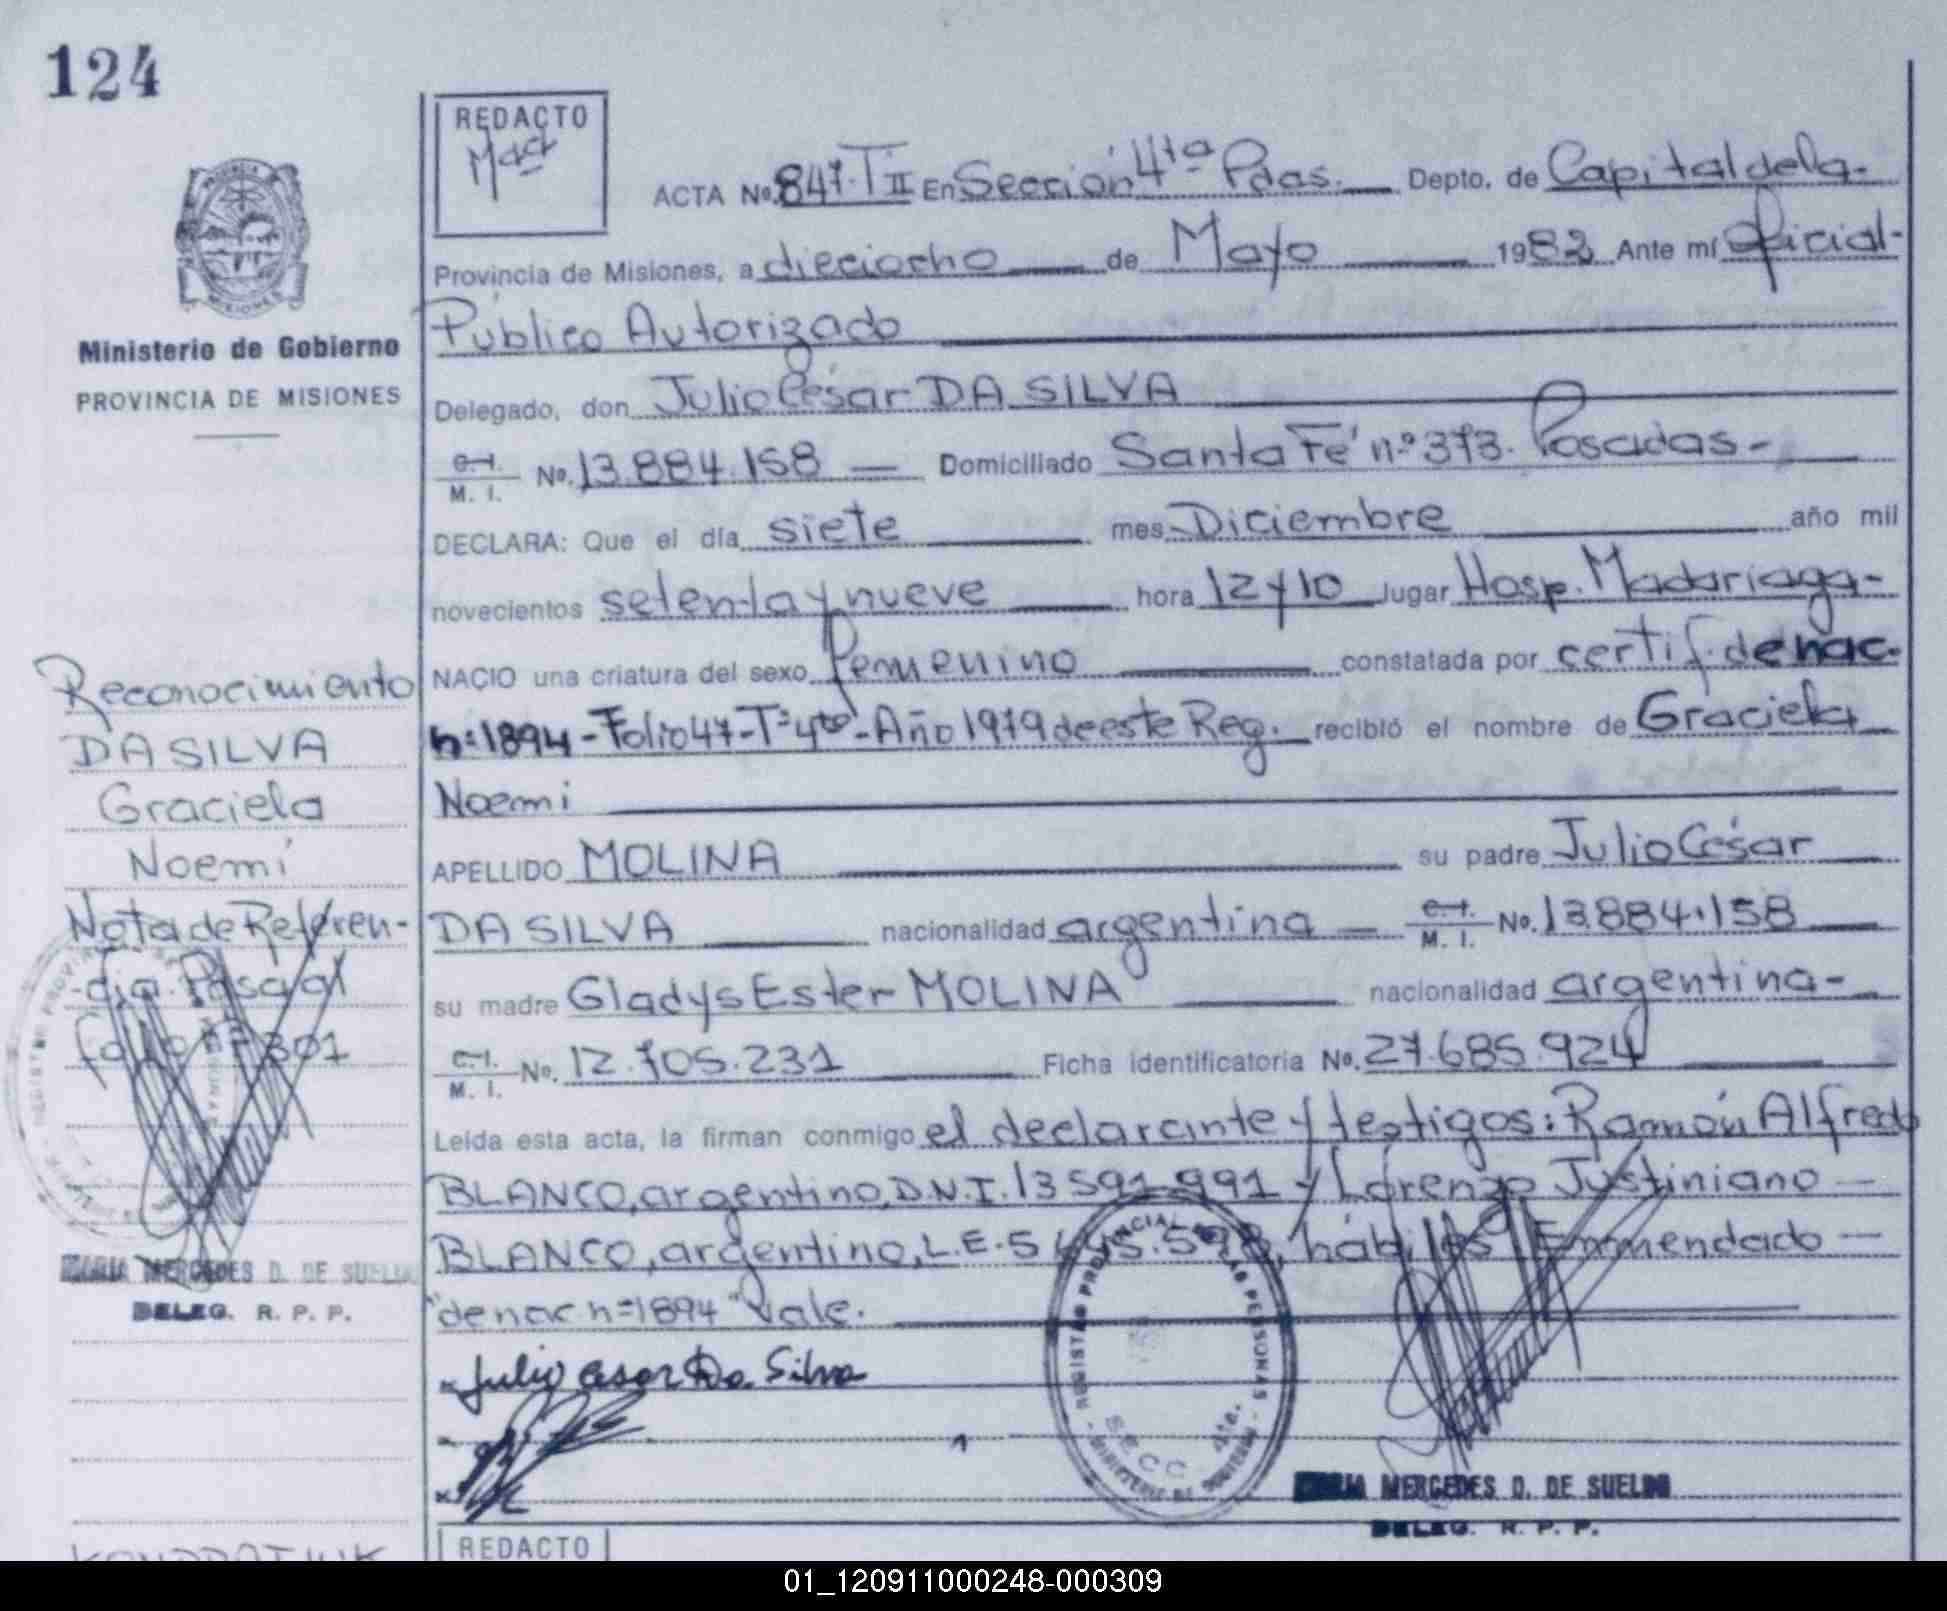 124
REDACTO
ACTA No. 847-T II En Sección 4ta Pdas. Depto. de Capital de la-
Provincia de Misiones, a dieciocho de Mayo 1982 Ante mí Oficial-
Público Autorizado
Delegado, don Julio César DA SILVA
C.I. M. I. No. 13.884.158 Domiciliado Santa Fé nº 373. Posadas-
DECLARA: Que el día siete mes Diciembre año mil
novecientos setenta y nueve hora 12 y 10 lugar Hosp. Madariaga-
NACIO una criatura del sexo femenino constatada por certif. de nac.
n=1894-Folio 47-Tº4to-Año 1979 de este Reg. recibió el nombre de Graciela
Noemi
APELLIDO MOLINA su padre Julio César
DA SILVA nacionalidad argentina C.I. M. I. No. 13.884.158
su madre Gladys Ester MOLINA nacionalidad argentina-
C.I. M. I. No. 12.705.231 Ficha identificatoria No. 27.685.924
Leída esta acta, la firman conmigo el declarante y testigos: Ramón Alfredo
BLANCO, argentino, D.N.I. 13 591 991 y Lorenzo Justiniano -
BLANCO, argentino, L.E. hábiles Enmendado -
"de nac n=1894" Vale.
Julio Cesar Da Silva
REGISTRO PROVINCIAL DE LAS PERSONAS
SECC. 4ta.
MINISTERIO DE GOBIERNO
MARIA MERCEDES D. DE SUELDO
DELEG. R. P. P.
MISIONES
Ministerio de Gobierno
PROVINCIA DE MISIONES
Reconocimiento
DA SILVA
Graciela
Noemí
Nota de Referen-
cia. Pasa al
folio nº 301
MARIA MERCEDES D. DE SUELDO
DELEG. R. P. P.
REDACTO
01_120911000248-000309